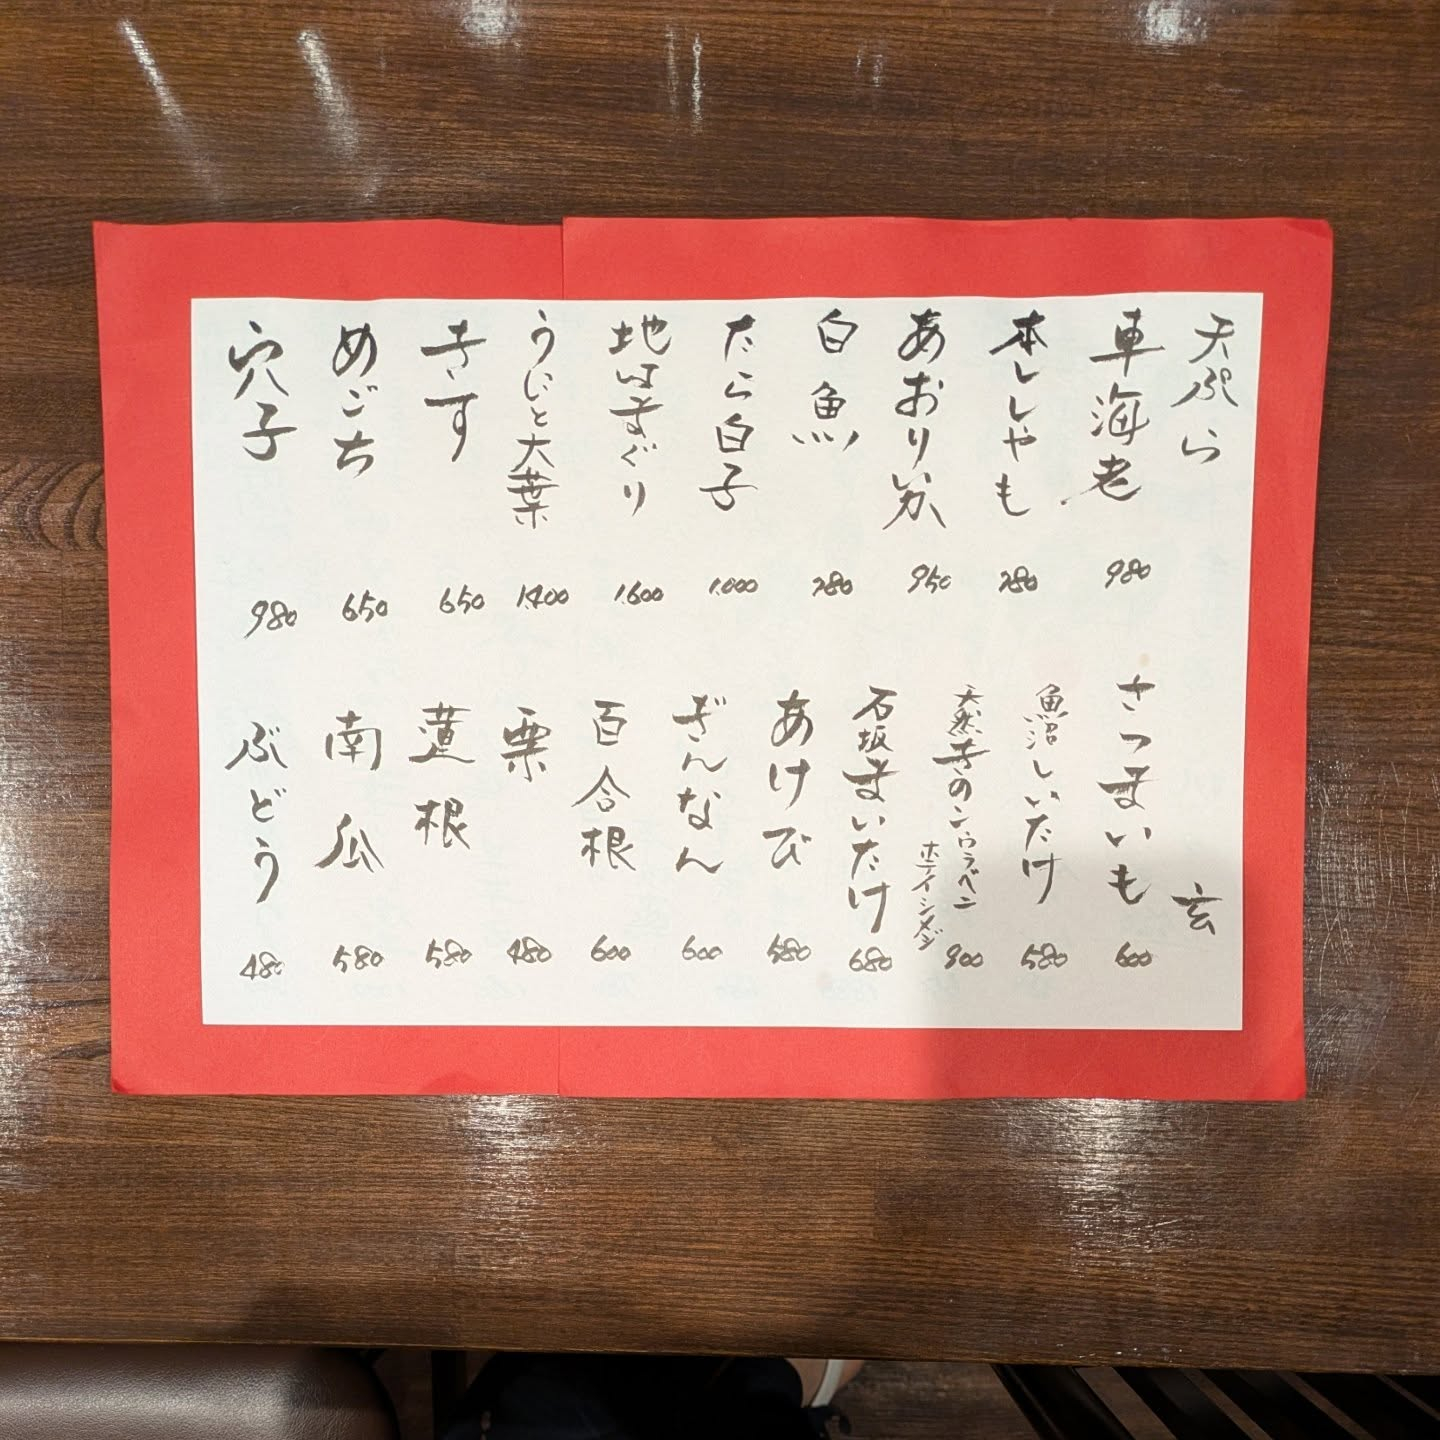 天ぷら
車海老 980
本ししゃも 780
あおりいか 950
白魚 780
たら白子 1.000
地はまぐり 1.600
うにと大葉 1.400
きす 650
めごち 650
穴子 980
玄
さつまいも 600
魚沼しいたけ 580
天然きのこ ウラベニ
ホテイシメジ 900
石坂まいたけ 680
あけび 580
ぎんなん 600
百合根 600
栗 480
蓮根 580
南瓜 580
ぶどう 480